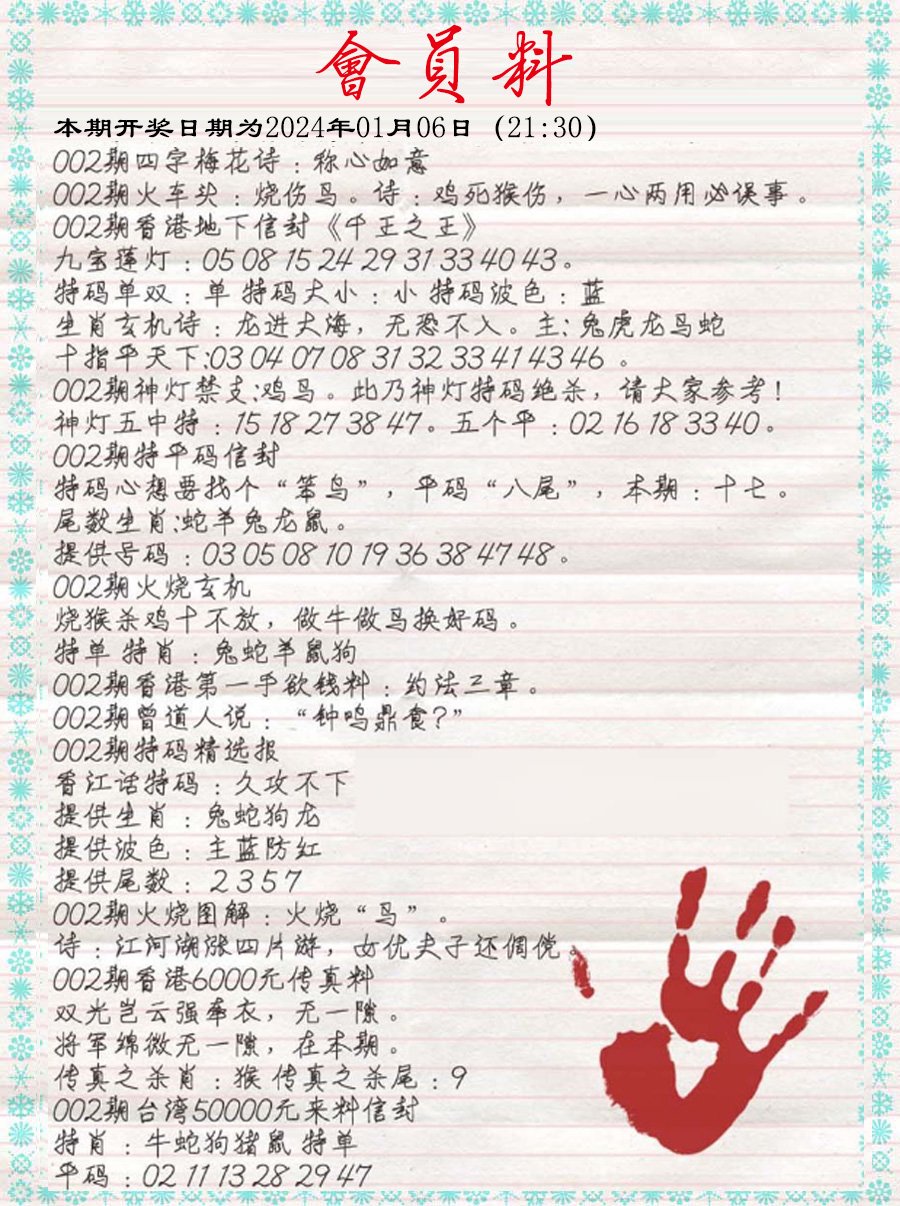 會員料
本期开奖日期为2024年01月06日（21:30）
002期四字梅花诗：称心如意
002期火车头：烧伤鸟。诗：鸡死猴伤，一心两用必误事。
002期香港地下信封《千王之王》
九宝莲灯：05 08 15 24 29 31 33 40 43。
特码单双：单 特码大小：小 特码波色：蓝
生肖玄机诗：龙进大海，无恐不入。主：兔虎龙马蛇
十指平天下:03 04 07 08 31 32 33 41 43 46 。
002期神灯禁支:鸡鸟。此乃神灯特码绝杀，请大家参考！
神灯五中特：15 18 27 38 47。五个平：02 16 18 33 40。
002期特平码信封
特码心想要找个“笨鸟”，平码“八尾”，本期：十七。
尾数生肖:蛇羊兔龙鼠。
提供号码：03 05 08 10 19 36 38 47 48。
002期火烧玄机
烧猴杀鸡十不放，做牛做马换好码。
特单 特肖：兔蛇羊鼠狗
002期香港第一手欲钱料：约法三章。
002期曾道人说：“钟鸣鼎食？”
002期特码精选报
香江话特码：久攻不下
提供生肖：兔蛇狗龙
提供波色：主蓝防红
提供尾数：2 3 5 7
002期火烧图解：火烧“鸟”。
诗：江河湖涨四片游，女优夫子还倜傥。
002期香港6000元传真料
双光岂云强牵衣，无一隙。
将军绵微无一隙，在本期。
传真之杀肖：猴 传真之杀尾：9
002期台湾50000元来料信封
特肖：牛蛇狗猪鼠 特单
平码：02 11 13 28 29 47